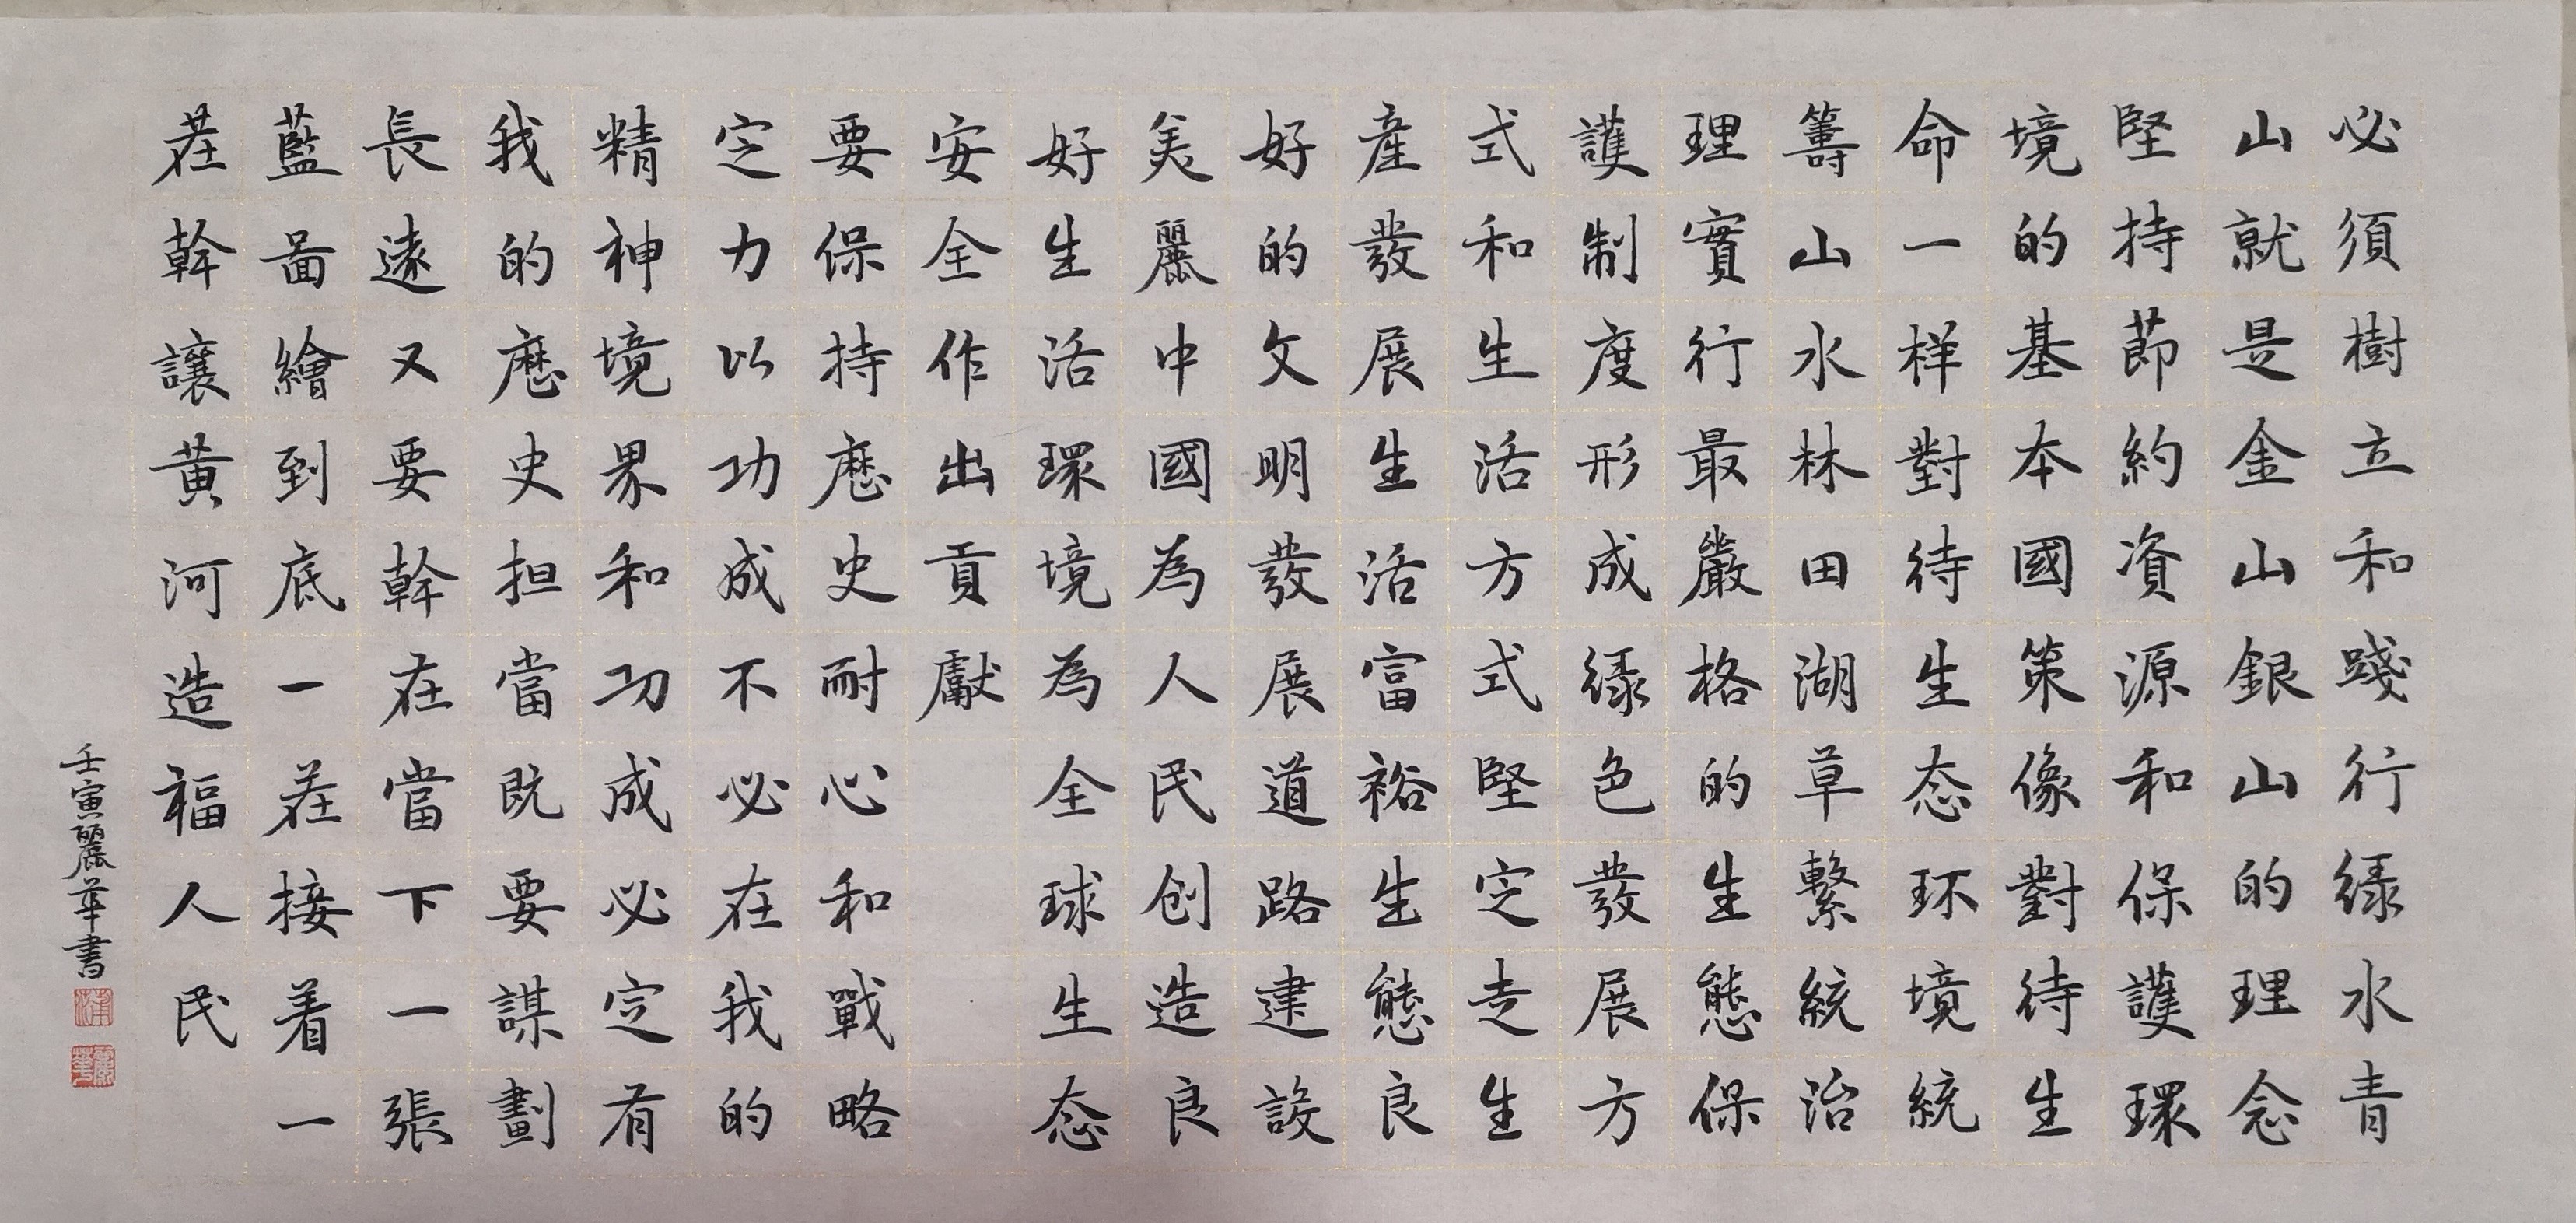 必須樹立和踐行緑水青
山就是金山銀山的理念
堅持莭約資源和保護環
境的基本國策像對待生
命一样對待生态环境統
籌山水林田湖草繫統治
理實行最嚴格的生態保
護制度形成緑色發展方
式和生活方式堅定走生
産發展生活富裕生態良
好的文明發展道路建設
美麗中國為人民创造良
好生活環境為全球生态
安全作出貢獻
要保持歷史耐心和戰略
定力以功成不必在我的
精神境界和功成必定有
我的歷史担當既要謀劃
長遠又要幹在當下一張
藍啚繪到底一茬接着一
茬幹讓黄河造福人民
壬寅麗華書